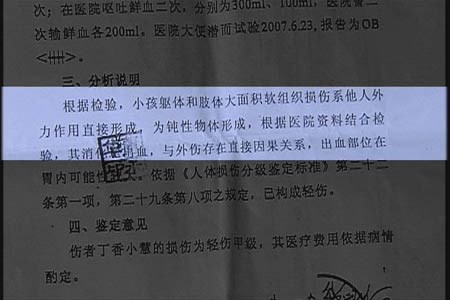 次；在医院呕吐鲜血二次，分别为300ml、100ml，医院曾二
次输鲜血各200ml。医院大便潜而试验2007.6.23,报告为OB
<卅>。
三、分析说明
根据检验，小孩躯体和肢体大面积软组织损伤系他人外
力作用直接形成，为钝性物体形成，根据医院资料结合检
验，其消化 出血，与外伤存在直接因果关系，出血部位在
胃内可能性 大。依据《人体损伤分级鉴定标准》第二十二
条第一项，第二十九条第八项之规定，已构成轻伤。
四、鉴定意见
伤者丁香小慧的损伤为轻伤甲级，其医疗费用依据病情
酌定。